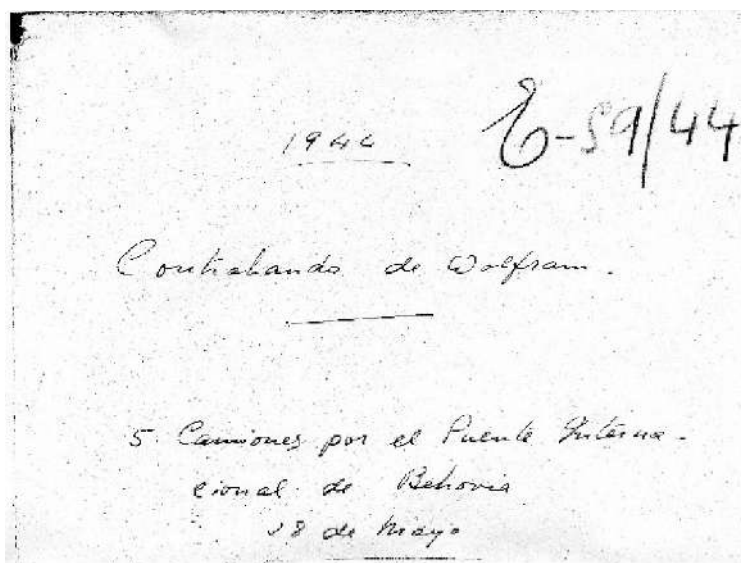 1944
E-59/44
Contrabando de Wolfram.
5 Camiones por el Puente Interna-
cional de Behovia
28 de Mayo